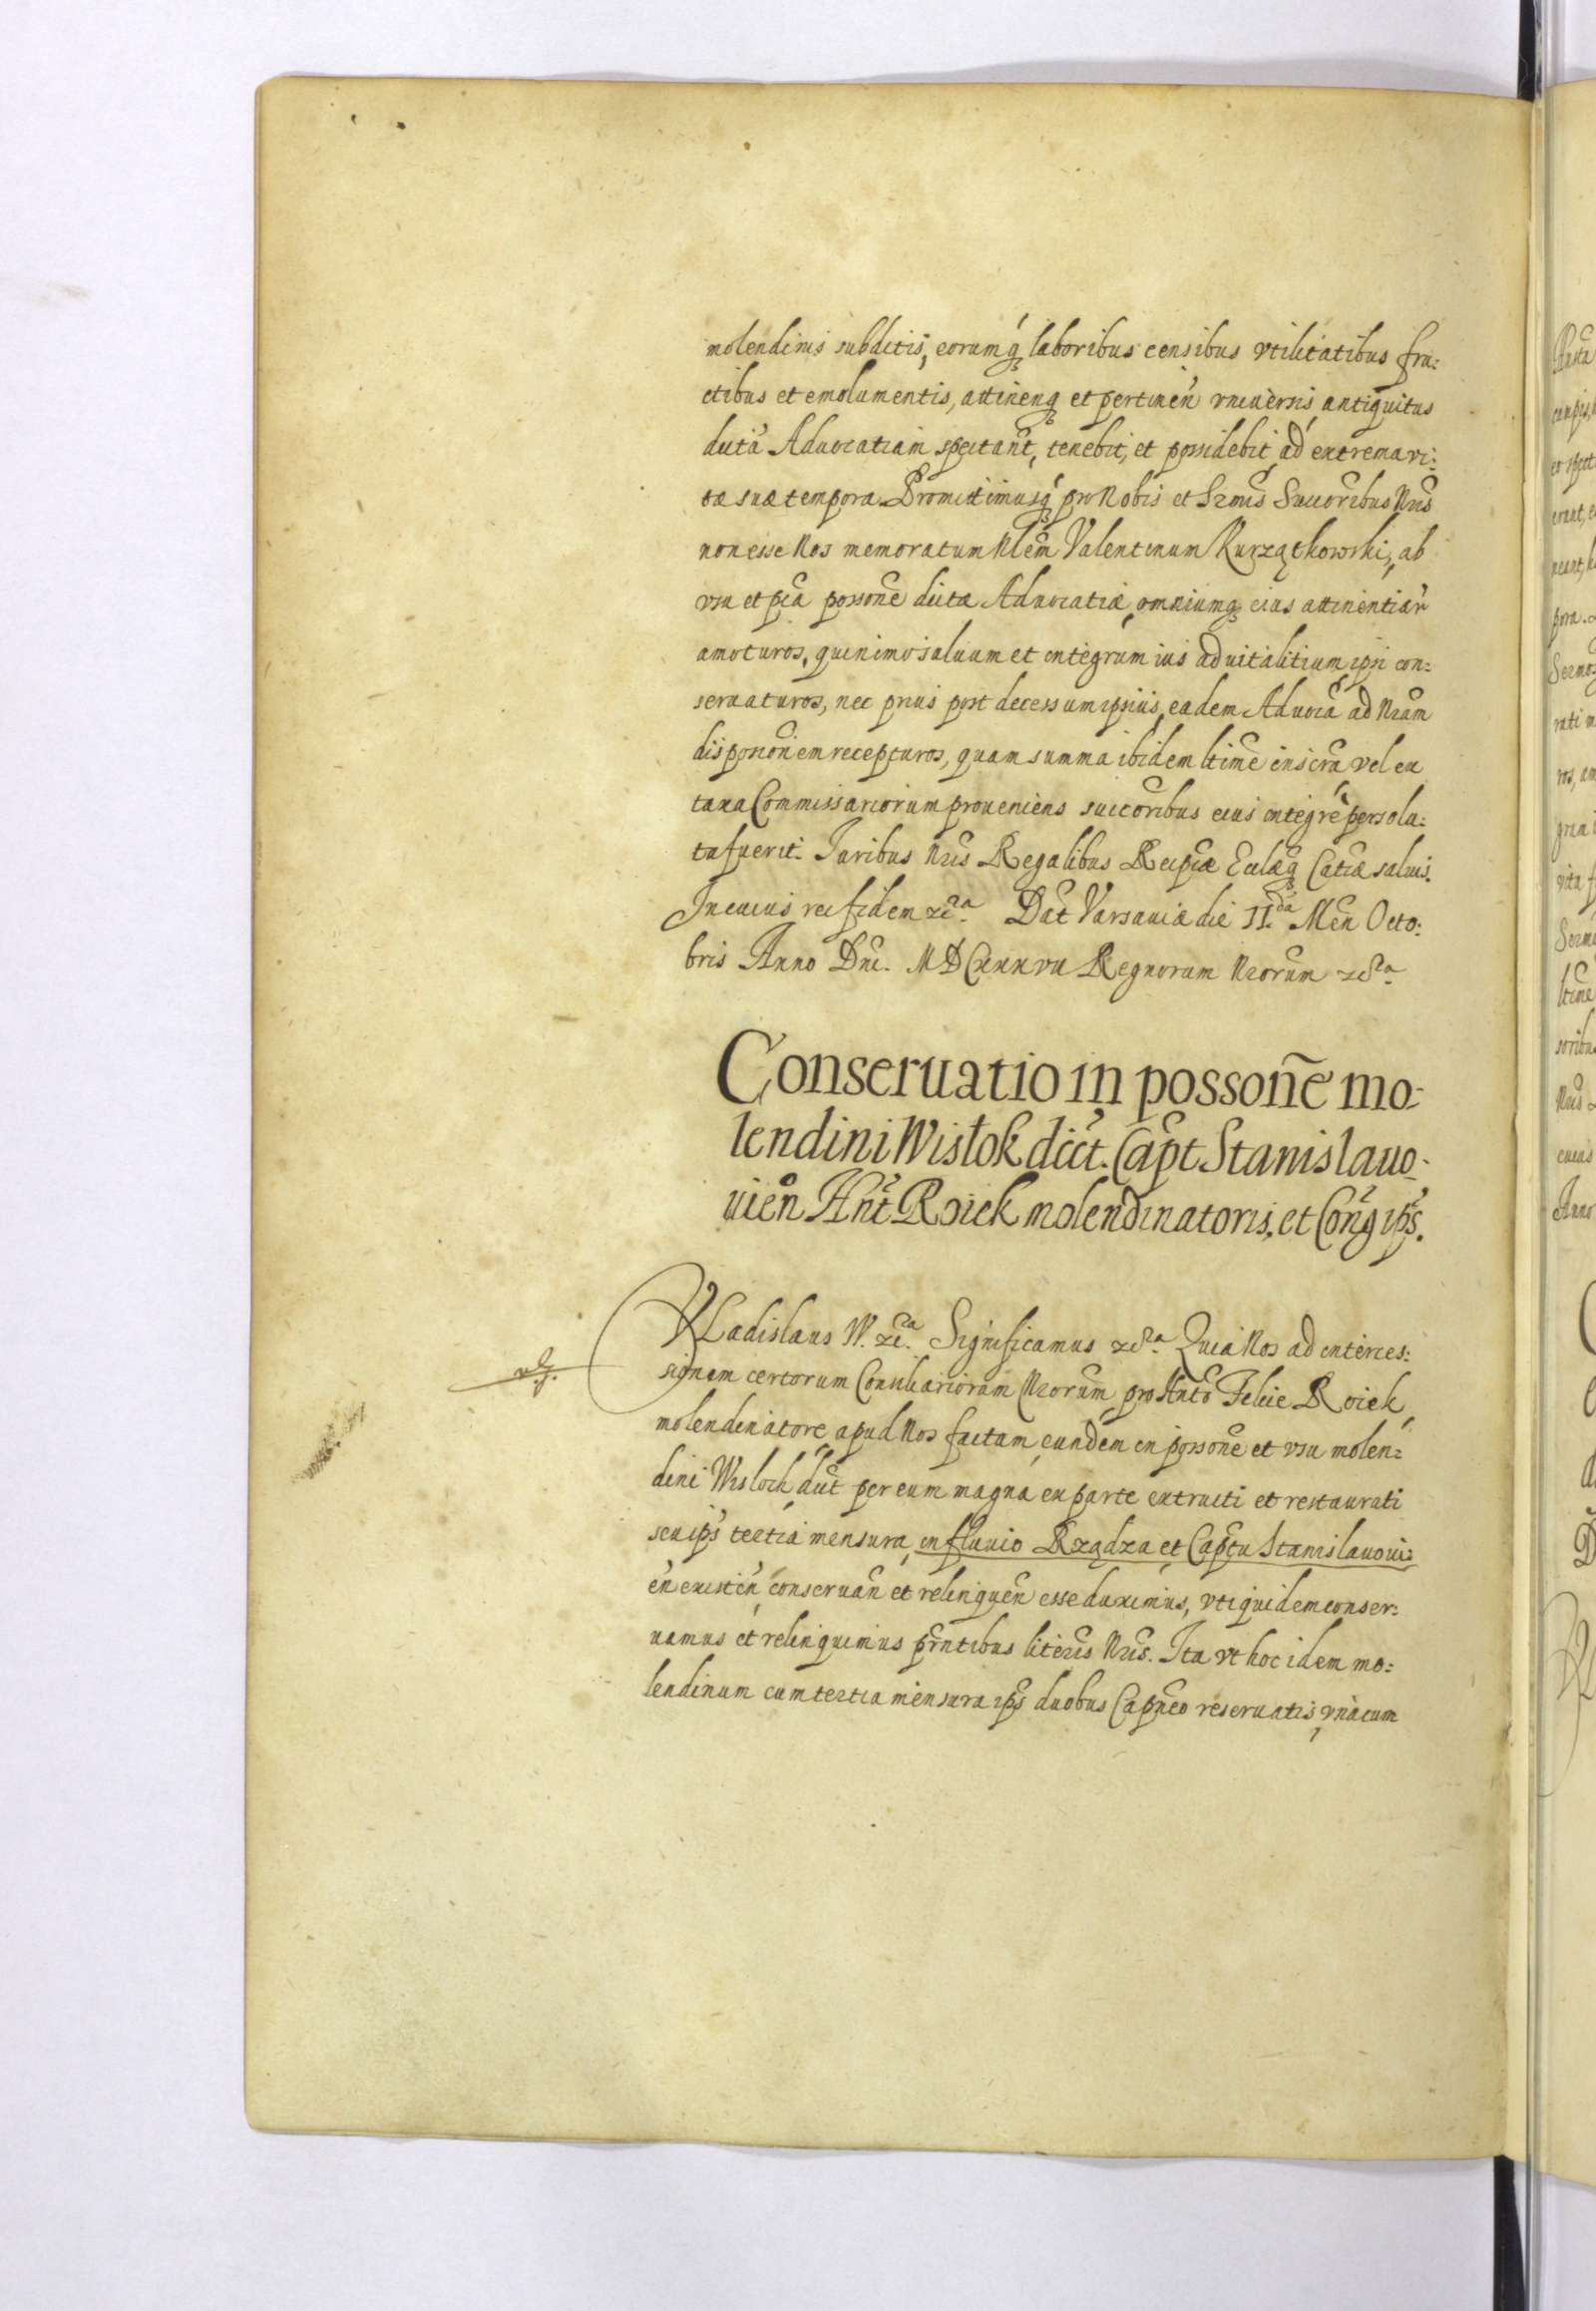 molendinis subditis, eorumq̃ laboribus censibus vtilitatibus fru:
ctibus et emolumentis, attinenq̃ et pertinen̄ vniuersis antiquitus
dictã Aduocatiam spectant̃, tenebit, et possidebit ad extrema vi:
tæ suæ tempora. Promittimusq̃ pro Nobis et Srmis̃ Succoribus Nris̃
non esse Nos memoratum Nlem̃ Valentinum Kurządkowski, ab
vsu et pca possone dictæ Aduocatiæ, omniumq̃ eius attinentiar̃
amoturos, quinimo saluum et integrum ius aduitalitium ipsi con:
seruaturos, nec prius post decessum ipsius, eadem Aduocã ad Nram̃
disposionem recepturos, quam summa ibidem ltime inscrã vel ex
taxa Commissariorum proueniens succoribus eius integrè persolu:
ta fuerit. Iuribus Nris̃ Regalibus Reipcæ Ecclæq̃ Catcæ saluis.
In cuius rei fidem &c̃ᵃ. Dat̃ Varsauiæ die II.da Men̄ Octo:
bris Anno Dni. MDCxxxvii Regnorum Nrorum̃ &c̃ᵃ.
Conseruatio in possonẽ mo:
lendini Wisłok dict̃. Capt̃ Stanislauo:
uien̄ Hnt̃ Roiek molendinatoris, et Conq̃ ips̃.
VLadislaus W. &c̃ᵃ. Significamus &c̃ᵃ. Quia Nos ad interces:
signem certorum Consiliariorum Nrorum̃ pro Hntõ Felice Roiek
molendinatore apud Nos factam, eundem in possonẽ et vsu molen:
dini Wislock dict̃ per eum magna ex parte extructi et restaurati
seu ips̃ tertia mensura, in fluuio Rządza et Captu Stanislauoui:
en̄ existen̄, conseruan̄ et relinquen̄ esse duximus, vti quidem conser:
uamus et relinquimus prntibus literis Nris̃. Ita vt hoc idem mo:
lendinum cum tertia mensura ips̃ duobus Capneo reseruatis, vnàcum